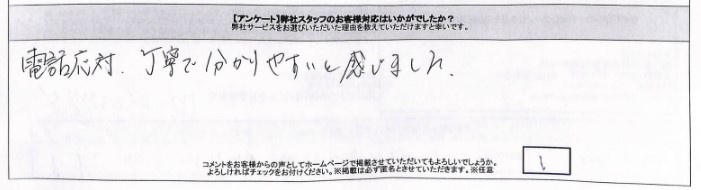 【アンケート】弊社スタッフのお客様対応はいかがでしたか？
弊社サービスをお選びいただいた理由を教えていただけますと幸いです。
電話応対、丁寧で分かりやすいと感じました。
コメントをお客様からの声としてホームページで掲載させていただいてもよろしいでしょうか。
よろしければチェックをお付けください。※掲載は必ず匿名とさせていただきます。※任意